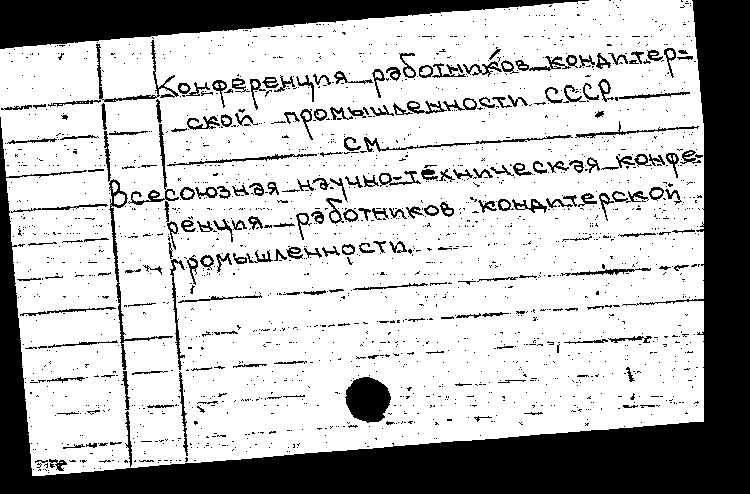 Конференция работников кондитер=
ской промышленности СССР.
см.
Всесоюзная научно-техническая конфе-
ренция работников кондитерской
промышленности.